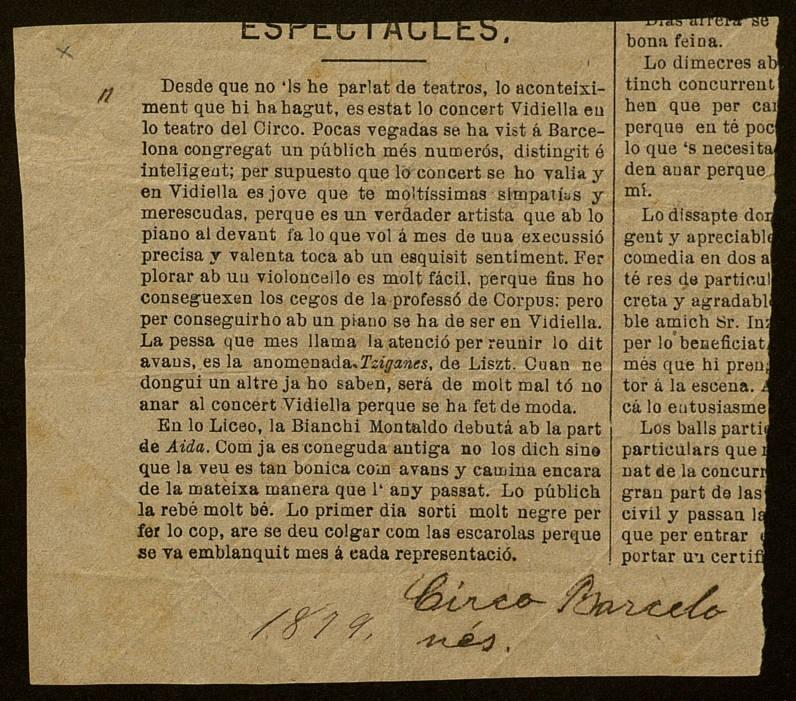 ESPECTACLES.
Desde que no 'ls he parlat de teatros, lo aconteixi-
ment que hi ha hagut, es estat lo concert Vidiella en
lo teatro del Circo. Pocas vegadas se ha vist á Barce-
lona congregat un públich més numerós, distingit é
inteligent; per supuesto que lo concert se ho valia y
en Vidiella es jove que te moltíssimas simpatías y
merescudas, perque es un verdader artista que ab lo
piano al devant fa lo que vol á mes de una execussió
precisa y valenta toca ab un esquisit sentiment. Fer
plorar ab un violoncello es molt fácil, perque fins ho
conseguexen los cegos de la professó de Corpus: pero
per conseguirho ab un piano se ha de ser en Vidiella.
La pessa que mes llama la atenció per reunir lo dit
avans, es la anomenada Tziganes, de Liszt. Cuan ne
dongui un altre ja ho saben, será de molt mal tó no
anar al concert Vidiella perque se ha fet de moda.
En lo Liceo, la Bianchi Montaldo debutá ab la part
de Aida. Com ja es coneguda antiga no los dich sino
que la veu es tan bonica com avans y camina encara
de la mateixa manera que l' any passat. Lo públich
la rebé molt bé. Lo primer dia sortí molt negre per
fer lo cop, are se deu colgar com las escarolas perque
se va emblanquit mes á cada representació.
Dias arrera se
bona feina.
Lo dimecres ab
tinch concurrent
hen que per cai
perque en té poc
lo que 's necesita
den anar perque
mí.
Lo dissapte don
gent y apreciable
comedia en dos a
té res de particul
creta y agradabl
ble amich Sr. In
per lo beneficiat
més que hi pren
tor á la escena. A
cá lo entusiasme
Los balls parti
particulars que
nat de la concurr
gran part de las
civil y passan la
que per entrar
portar un certif
1879. Circo Barcelo
nés.